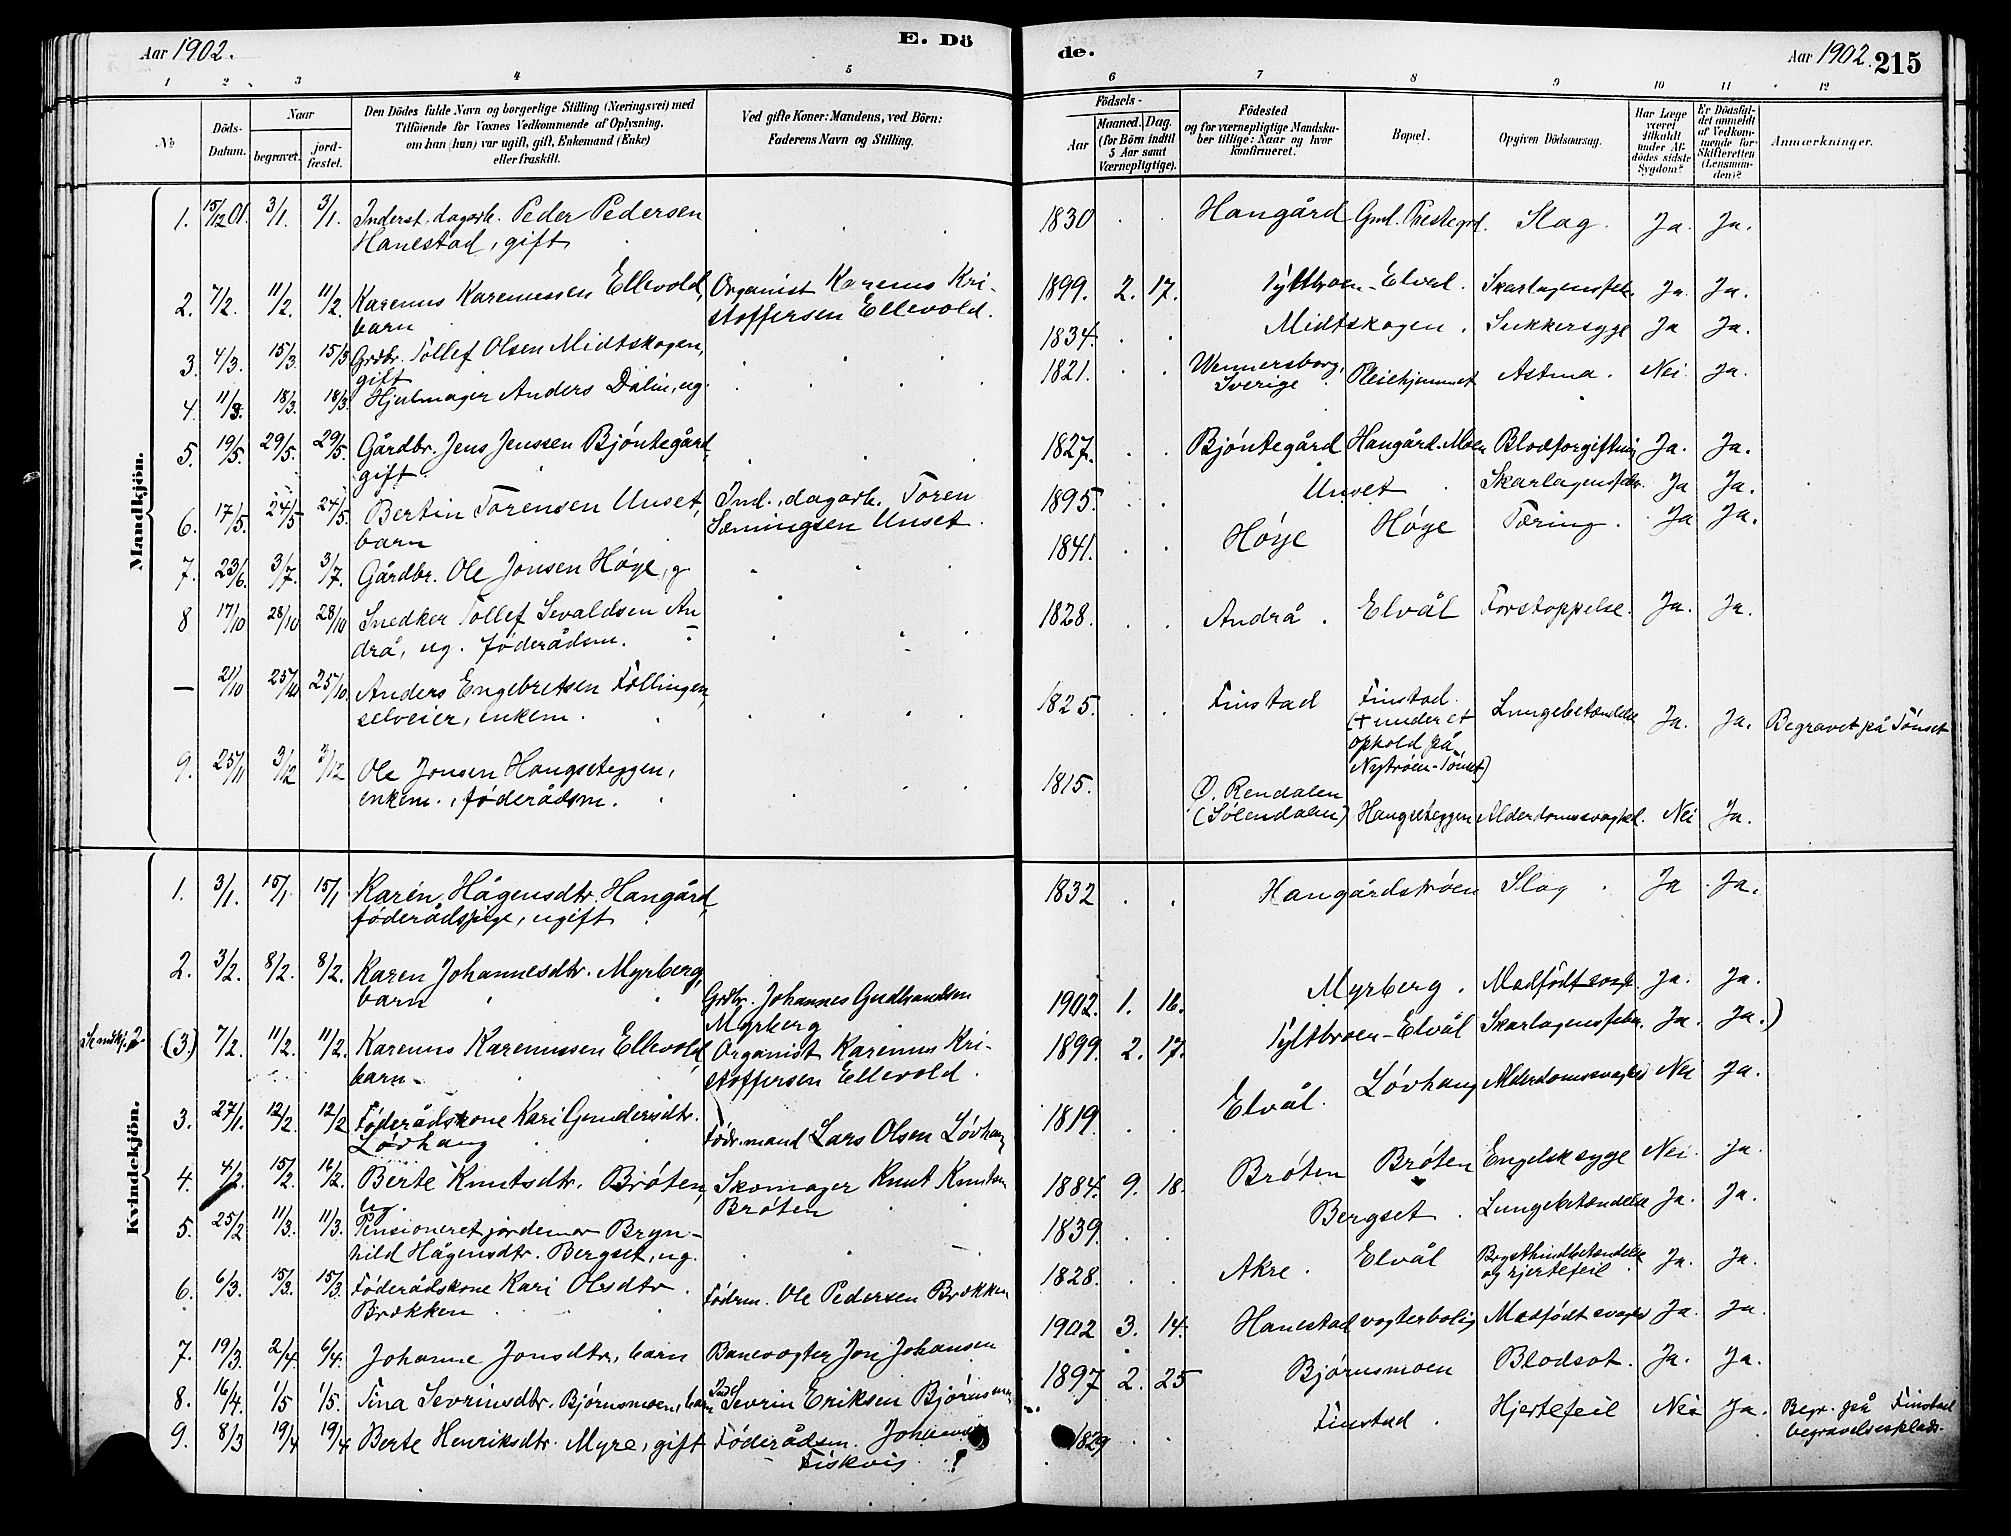 Aar 1902. E. Döde. Aar 1902. 215
1 2 3 4 5 6 7 8 9 10 11 12
No
Döds-Datum.
Naar
begravet.
jordfæstet.
Den Dödes fulde Navn og borgerlige Stilling (Næringsvei) med
Tilföiende for Voxnes Vedkommende af Oplysning,
om han (hun) var ugift, gift, Enkemand (Enke)
eller fraskilt.
Ved gifte Koner: Mandens, ved Börn:
Faderens Navn og Stilling.
Födsels-
Aar
Maaned. Dag.
(for Börn indtil
5 Aar samt
Værnepligtige).
Födested
og for værnepligtige Mandska-
ber tillige: Naar og hvor
konfirmeret.
Bopæl.
Opgiven Dödsaarsag.
Har Læge
været
tilkaldt
under Af-
dödes sidste
Sygdom?
Er Dödsfal-
det anmeldt
af Vedkom-
mende for
Skifteretten
(Lensman-
den)?
Anmærkninger.
Mandkjön.
1. 15/12 01. 3/1. 3/1. Inderst. dagarb. Peder Pedersen
Hanestad, gift
1830 Hangård Gml. Prestegrd. Slag. Ja. Ja.
2. 7/2. 11/2. 11/2. Karenus Karenussen Ellevold, Organist Karenus Kri-
barn stoffersen Ellevold.
1899. 2. 17. Tyltbroen-Elvål. Skarlagensfeb. Ja. Ja.
3. 4/3. 15/3. 15/3 Grdbr. Tollef Olsen Midtskogen,
gift
1834. Midtskogen. Sukkersyge Ja Ja.
4. 11/3. 18/3. 18/3. Hjulmager Anders Dalin, ug.
1821. Wennersborg,
Sverige Pleiehjemmet Astma. Nei. Ja.
5. 19/5. 29/5. 29/5. Gårdbr. Jens Jenssen Bjøntegård,
gift.
1827. Bjøntegård Hangård-Moen Blodforgiftning Ja. Ja.
6. 17/5. 24/5 24/5. Bertin Torensen Unset, Ind., dagarb. Toren
barn Sæmingsen Unset.
1895. Unset Skarlagensfeber Ja Ja.
7. 23/6. 3/7. 3/7. Gårdbr. Ole Jonsen Høye, g
1841. Høye Høge Tæring. Ja Ja.
8 17/10 28/10 28/10 Snedker Tollef Sevaldsen An
drå, ug. føderådsm.
1828. Andrå. Elvål Forstoppelse. Ja. Ja.
— 21/10 25/10 25/10. Anders Engebretsen Føllingen,
selveier, enkem.
1825. Finstad Finstad.
(+ under et
ophold på
Nytrøen-Tönset) Lungebetændelse Ja. Ja. Begravet på Tönset
9. 25/11 3/12 3/12 Ole Jonsen Hangseteggen,
enkem., føderådsm.
1815. Ø. Rendalen
(Sølendalen) Hangseteggen Alderdomssvaghed. Nei Ja.
Kvindekjön.
1. 3/1. 15/1. 15/1 Karin Hågensdtr. Hangård,
føderådspige, ugift
1832 Hangårdstrøen Slag Ja Ja.
2. 3/2. 8/2. 8/2. Karen Johannesdtr. Myrberg,
barn Grdbr. Johannes Gudbrandsen
Myrberg
1902. 1. 16. Myrberg. Medfødt svagh. Ja. Ja.
(3.) 7/2. 11/2. 11/2. Karenus Karenussen Ellevold, Organist Karenus Kri-
barn. stoffersen Ellevold.
1899. 2. 17. Tyltbroen-Elvål Skarlagensfeber. Ja. Ja.)
3. 27/1. 12/2. 12/2 Føderådskone Kari Gundersdtr.
Løvhaug Fødr.mand Lars Olsen Løvhaug
1819. Elvål. Løvhaug Alderdomssvaghed Nei Ja.
4. 4/2. 15/2. 16/2. Berte Knutsdtr. Brøten, Skomager Knut Knutsen
ug. Brøten
1884. 9. 18. Brøten Brøten Engelsk syge Nei. Ja.
5. 25/2 11/3. 11/3. Pensioneret jordemor Bryn-
hild Hågensdtr. Bergset, ug.
1839. Bergset. Lungebetændelse Ja. Ja.
6. 6/3. 15/3. 15/3. Føderådskone Kari Olsdtr.
Brækken Fødrm. Ole Pedersen Brækken
1828. Akre. Elvål Brysthindebetændelse
og hjertefeil Ja. Ja.
7. 19/3. 2/4 6/4. Johanne Jonsdtr., barn Banevogter Jon Johansen
1902 3. 14. Hanestad vogterbolig Medfødt svaghed Ja. Ja.
8. 16/4. 1/5 1/5. Tina Sevrinsdtr. Bjørnsmoen, barn Inds. Sevrin Eriksen Bjørnsmoen
1897 2. 25 Bjørnsmoen Blodsot. Ja. Ja.
9. 8/3 19/4 19/4 Berte Henriksdtr. Myre, gift Føderådsm. Johannes
Fiskvig
1829 Finstad. Hjertefeil Nei Ja. Begr. på Finstad
begravelsesplads.